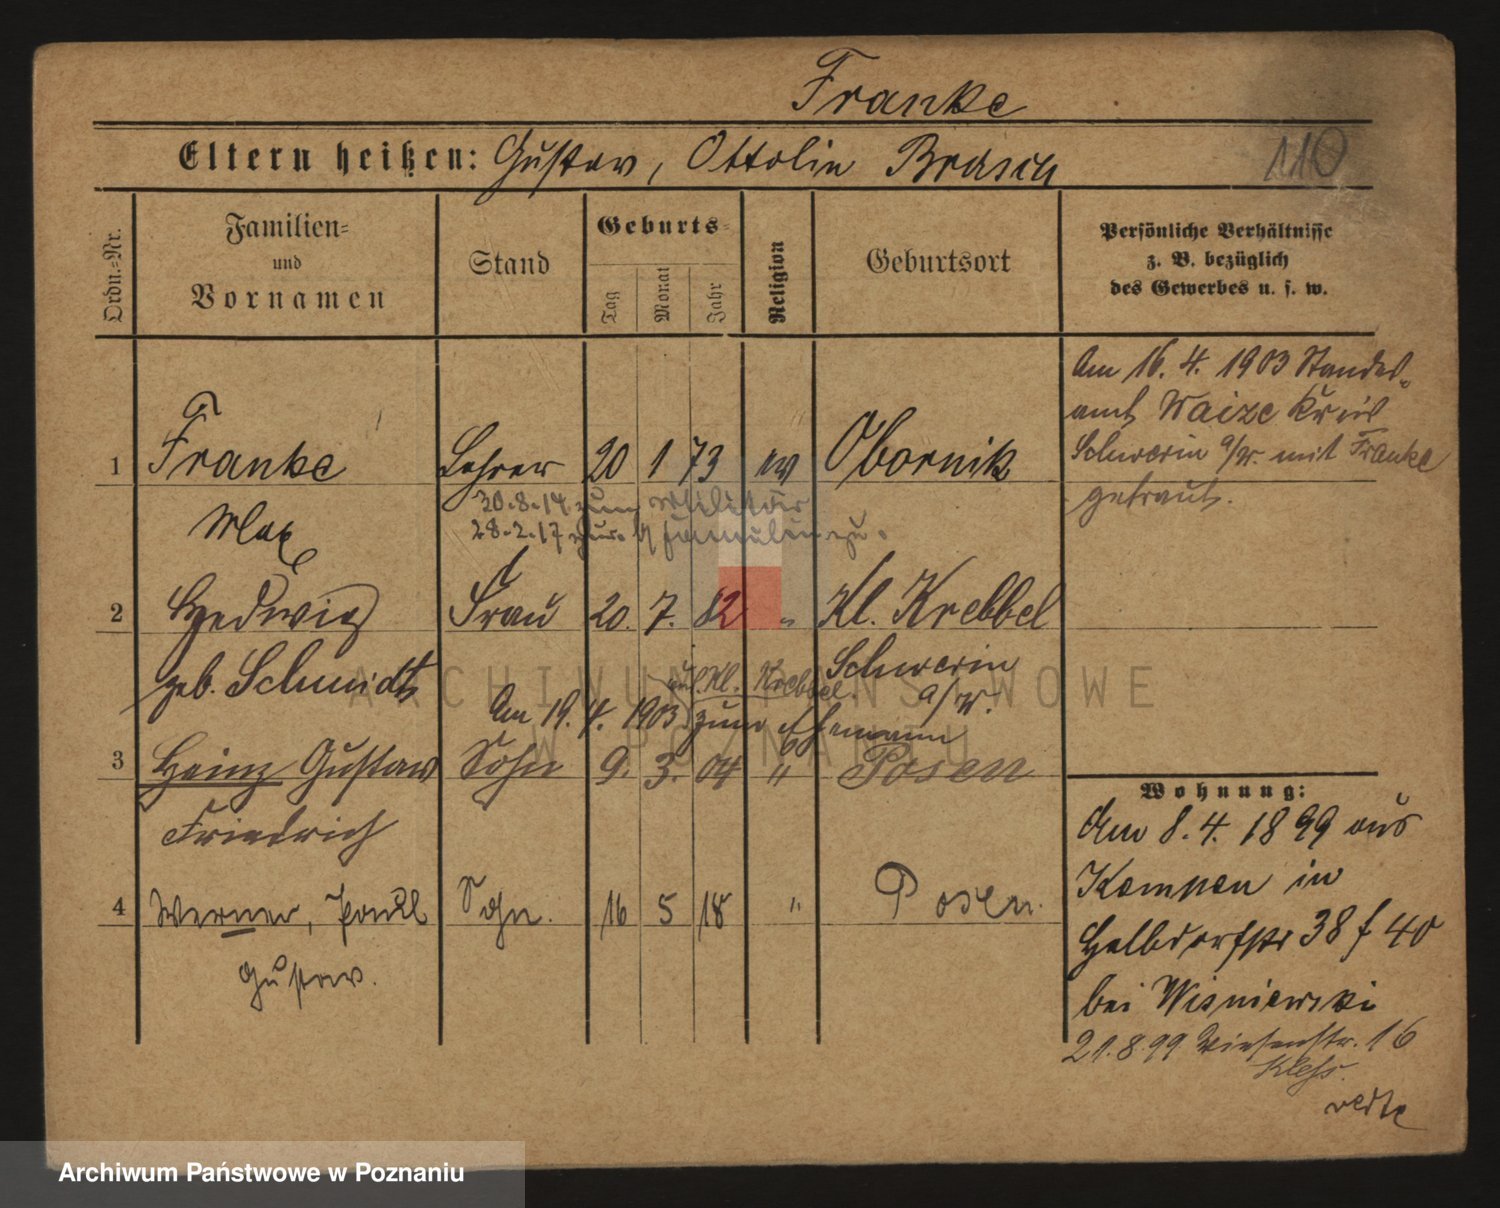 Franke
Eltern heißen: Gustav, Ottolin Brasch
110
Ordn.=Nr.
Familien=
und
Vornamen
Stand
Geburts=
Tag
Monat
Jahr
Religion
Geburtsort
Persönliche Verhältnisse
z. B. bezüglich
des Gewerbes u. s. w.
Am 16. 4. 1903 Standes-
amt Waize Kreis
Schwerin a/W. mit Franke
getraut.
1 Franke Lehrer 20 1 73 ev Obornik
Max
20.8.14 zum Militär
28.2.17 zur.
2 Hedwig Frau 20. 7. 82 " Kl. Krebbel
geb. Schmidt Schwerin
a/W.
Am 19. 4. 1903 aus Kl. Krebbel
zum Ehemann
3 Heinz Gustav Sohn 9. 3. 04 " Posen
Friedrich
4 Werner, Paul Sohn. 16 5 18 " Posen.
Gustav.
Wohnung:
Am 8. 4. 1899 aus
Kempen in
Halbdorfstr 38 f 40
bei Wisniewski
21.8.99 Wiesenstr. 16
verte
ARCHIWUM PAŃSTWOWE
W POZNANIU
Archiwum Państwowe w Poznaniu